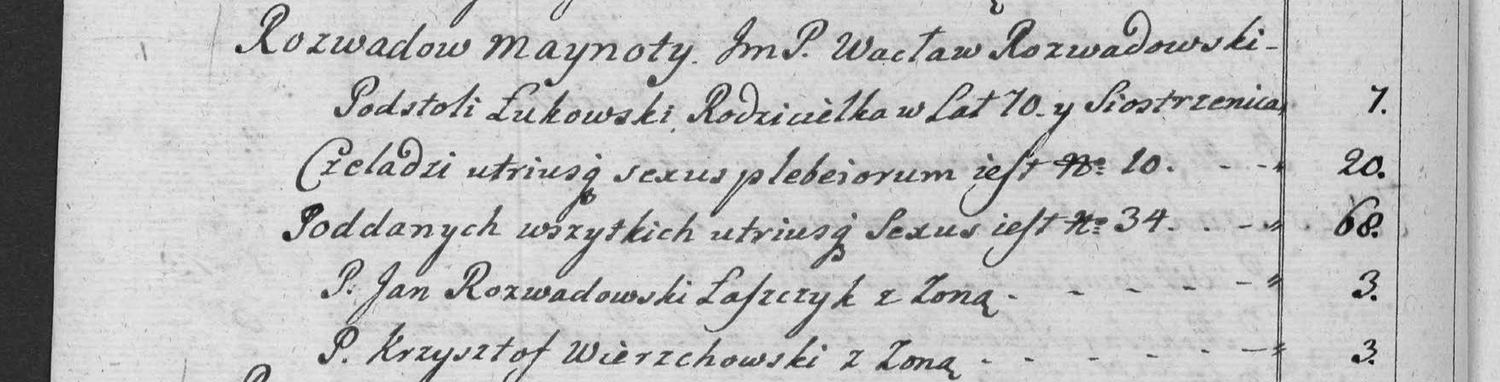 Rozwadow Maynoty. Jm P. Wacław Rozwadowski-
Podstoli Łukowski, Rodzicielka w Lat 70. y Siostrzenica, 7.
Czeladzi utriusq sexus plebeiorum iest No 10. - - - 20.
Poddanych wszytkich utriusq Sexus iest No 34. . - - . 68.
P. Jan Rozwadowski Łaszczyk z Zoną - - - - - - 3.
P. Krzysztof Wierzchowski z Zoną - - - - - - 3.